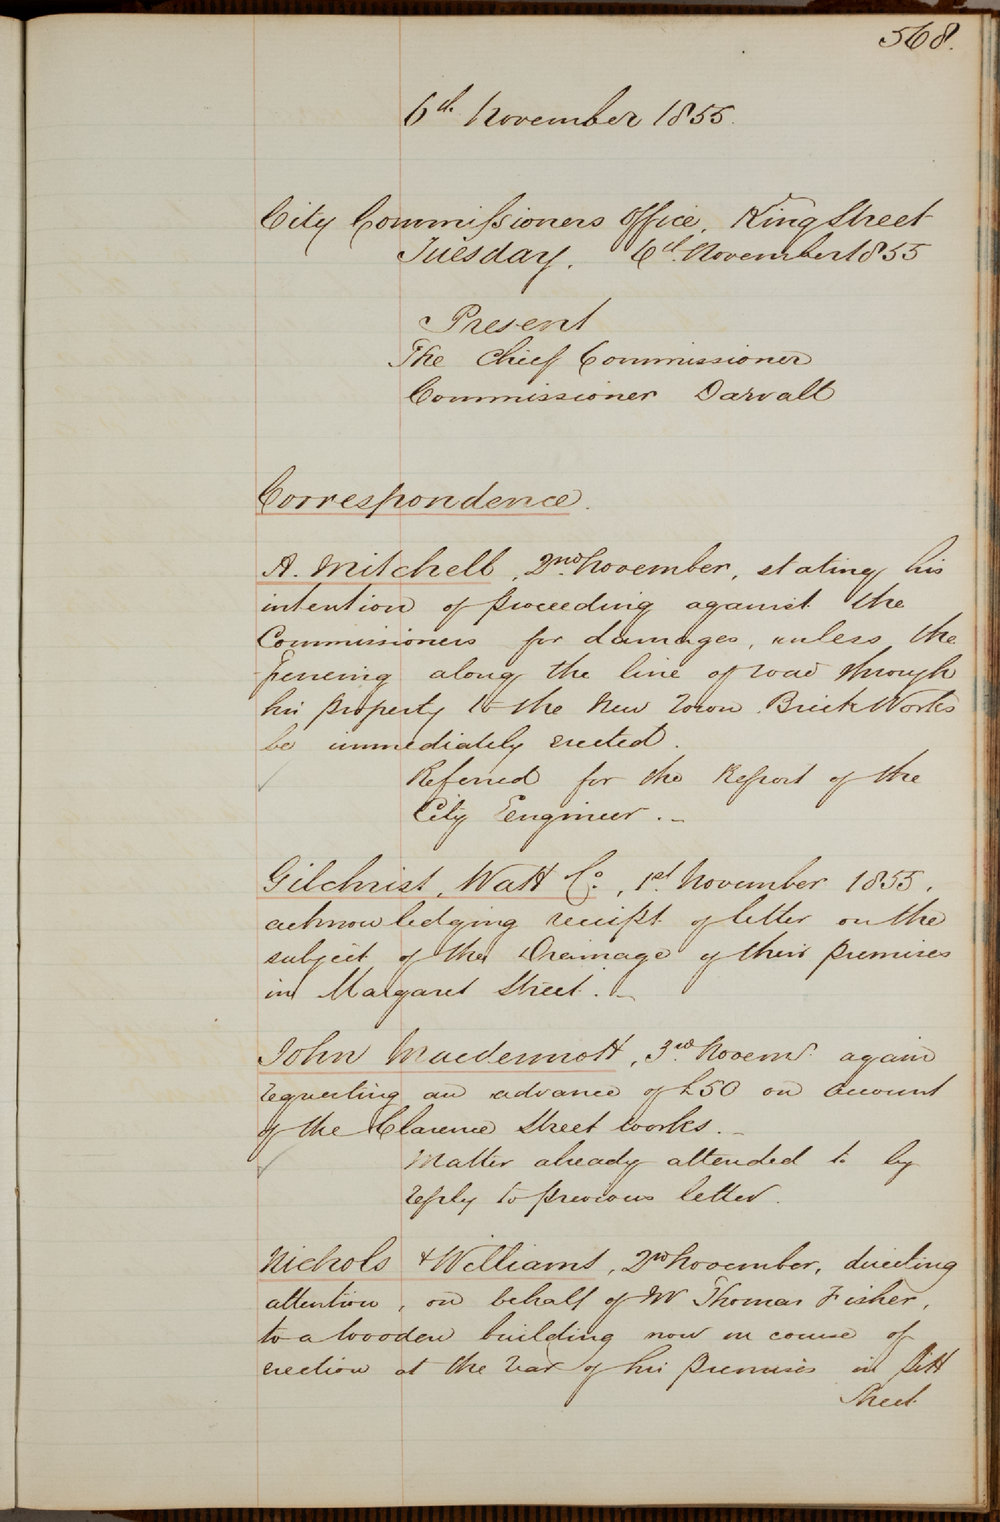 568.
6th November 1855.
City Commissioners Office, King Street
Tuesday, 6th November 1855
Present
The Chief Commissioner
Commissioner Darvall
Correspondence.
A. Mitchell, 2nd November, stating his
intention of proceeding against the
Commissioners for damages, unless the
fencing along the line of road through
his property to the New Town Brick Works
be immediately erected.
Referred for the Report of the
City Engineer. _
Gilchrist, Watt Co., 1st November 1855,
acknowledging receipt of letter on the
subject of the Drainage of their premises
in Margaret Street. _
John Macdermott, 3rd Novemr. again
requesting an advance of £50 on account
of the Clarence Street works. _
Matter already attended to by
reply to previous letter.
Nichols & Williams, 2nd November, directing
attention, on behalf of Mr Thomas Fisher,
to a wooden building now in course of
erection at the rear of his premises in Pitt
Street